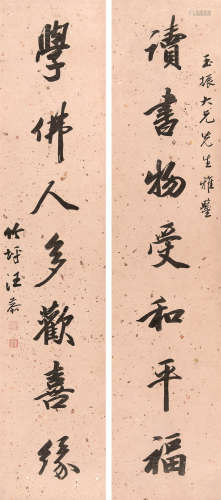 讀書物受和平福
玉振大兄先生雅鑒
學佛人多歡喜緣
竹坪汪恭